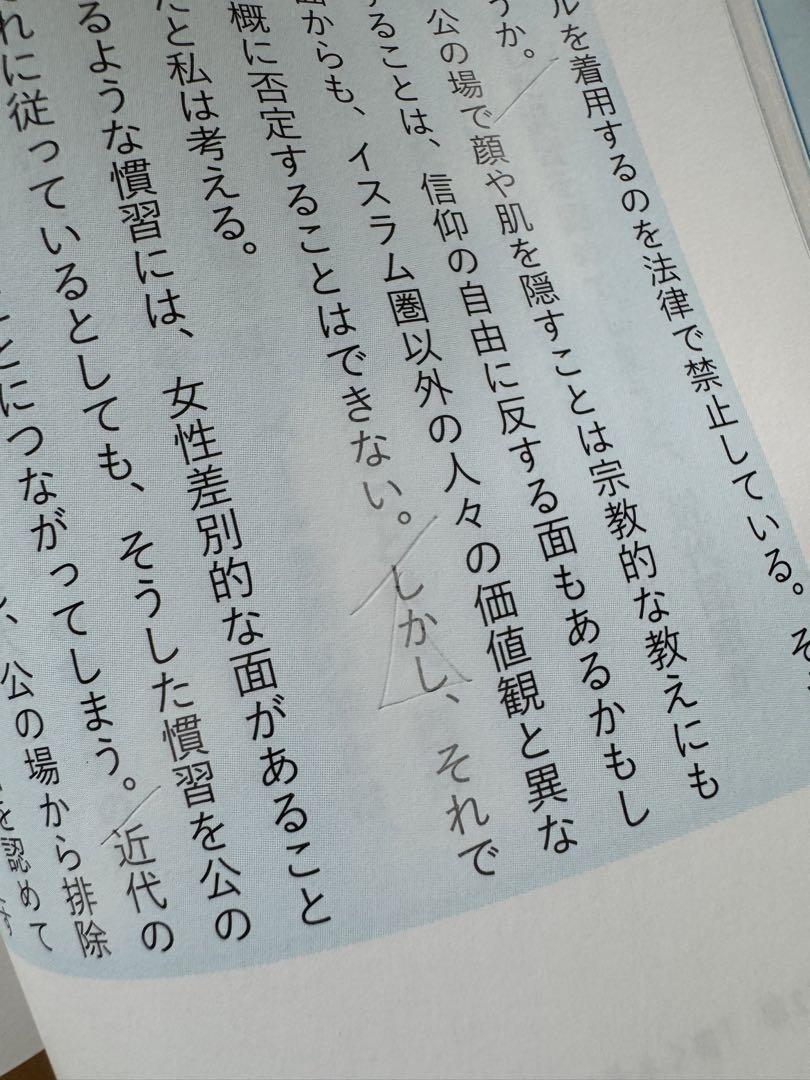 ルを着用するのを法律で禁止している。そ
うか。
公の場で顔や肌を隠すことは宗教的な教えにも
することは、信仰の自由に反する面もあるかもし
面からも、イスラム圏以外の人々の価値観と異な
概に否定することはできない。しかし、それで
たと私は考える。
るような慣習には、女性差別的な面があること
れに従っているとしても、そうした慣習を公の
ことにつながってしまう。近代の
、公の場から排除
を認めて